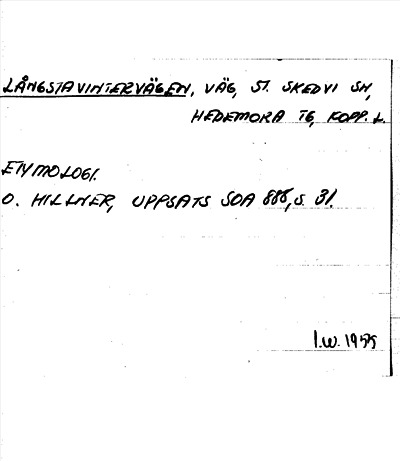 LÅNGSTAVINTERVÄGEN, VÄG, ST. SKEDVI SN,
HEDEMORA TG, KOPP. L.
ETYMOLOGI.
O. HILLNER, UPPSATS SOA S. 31.
I.W. 19